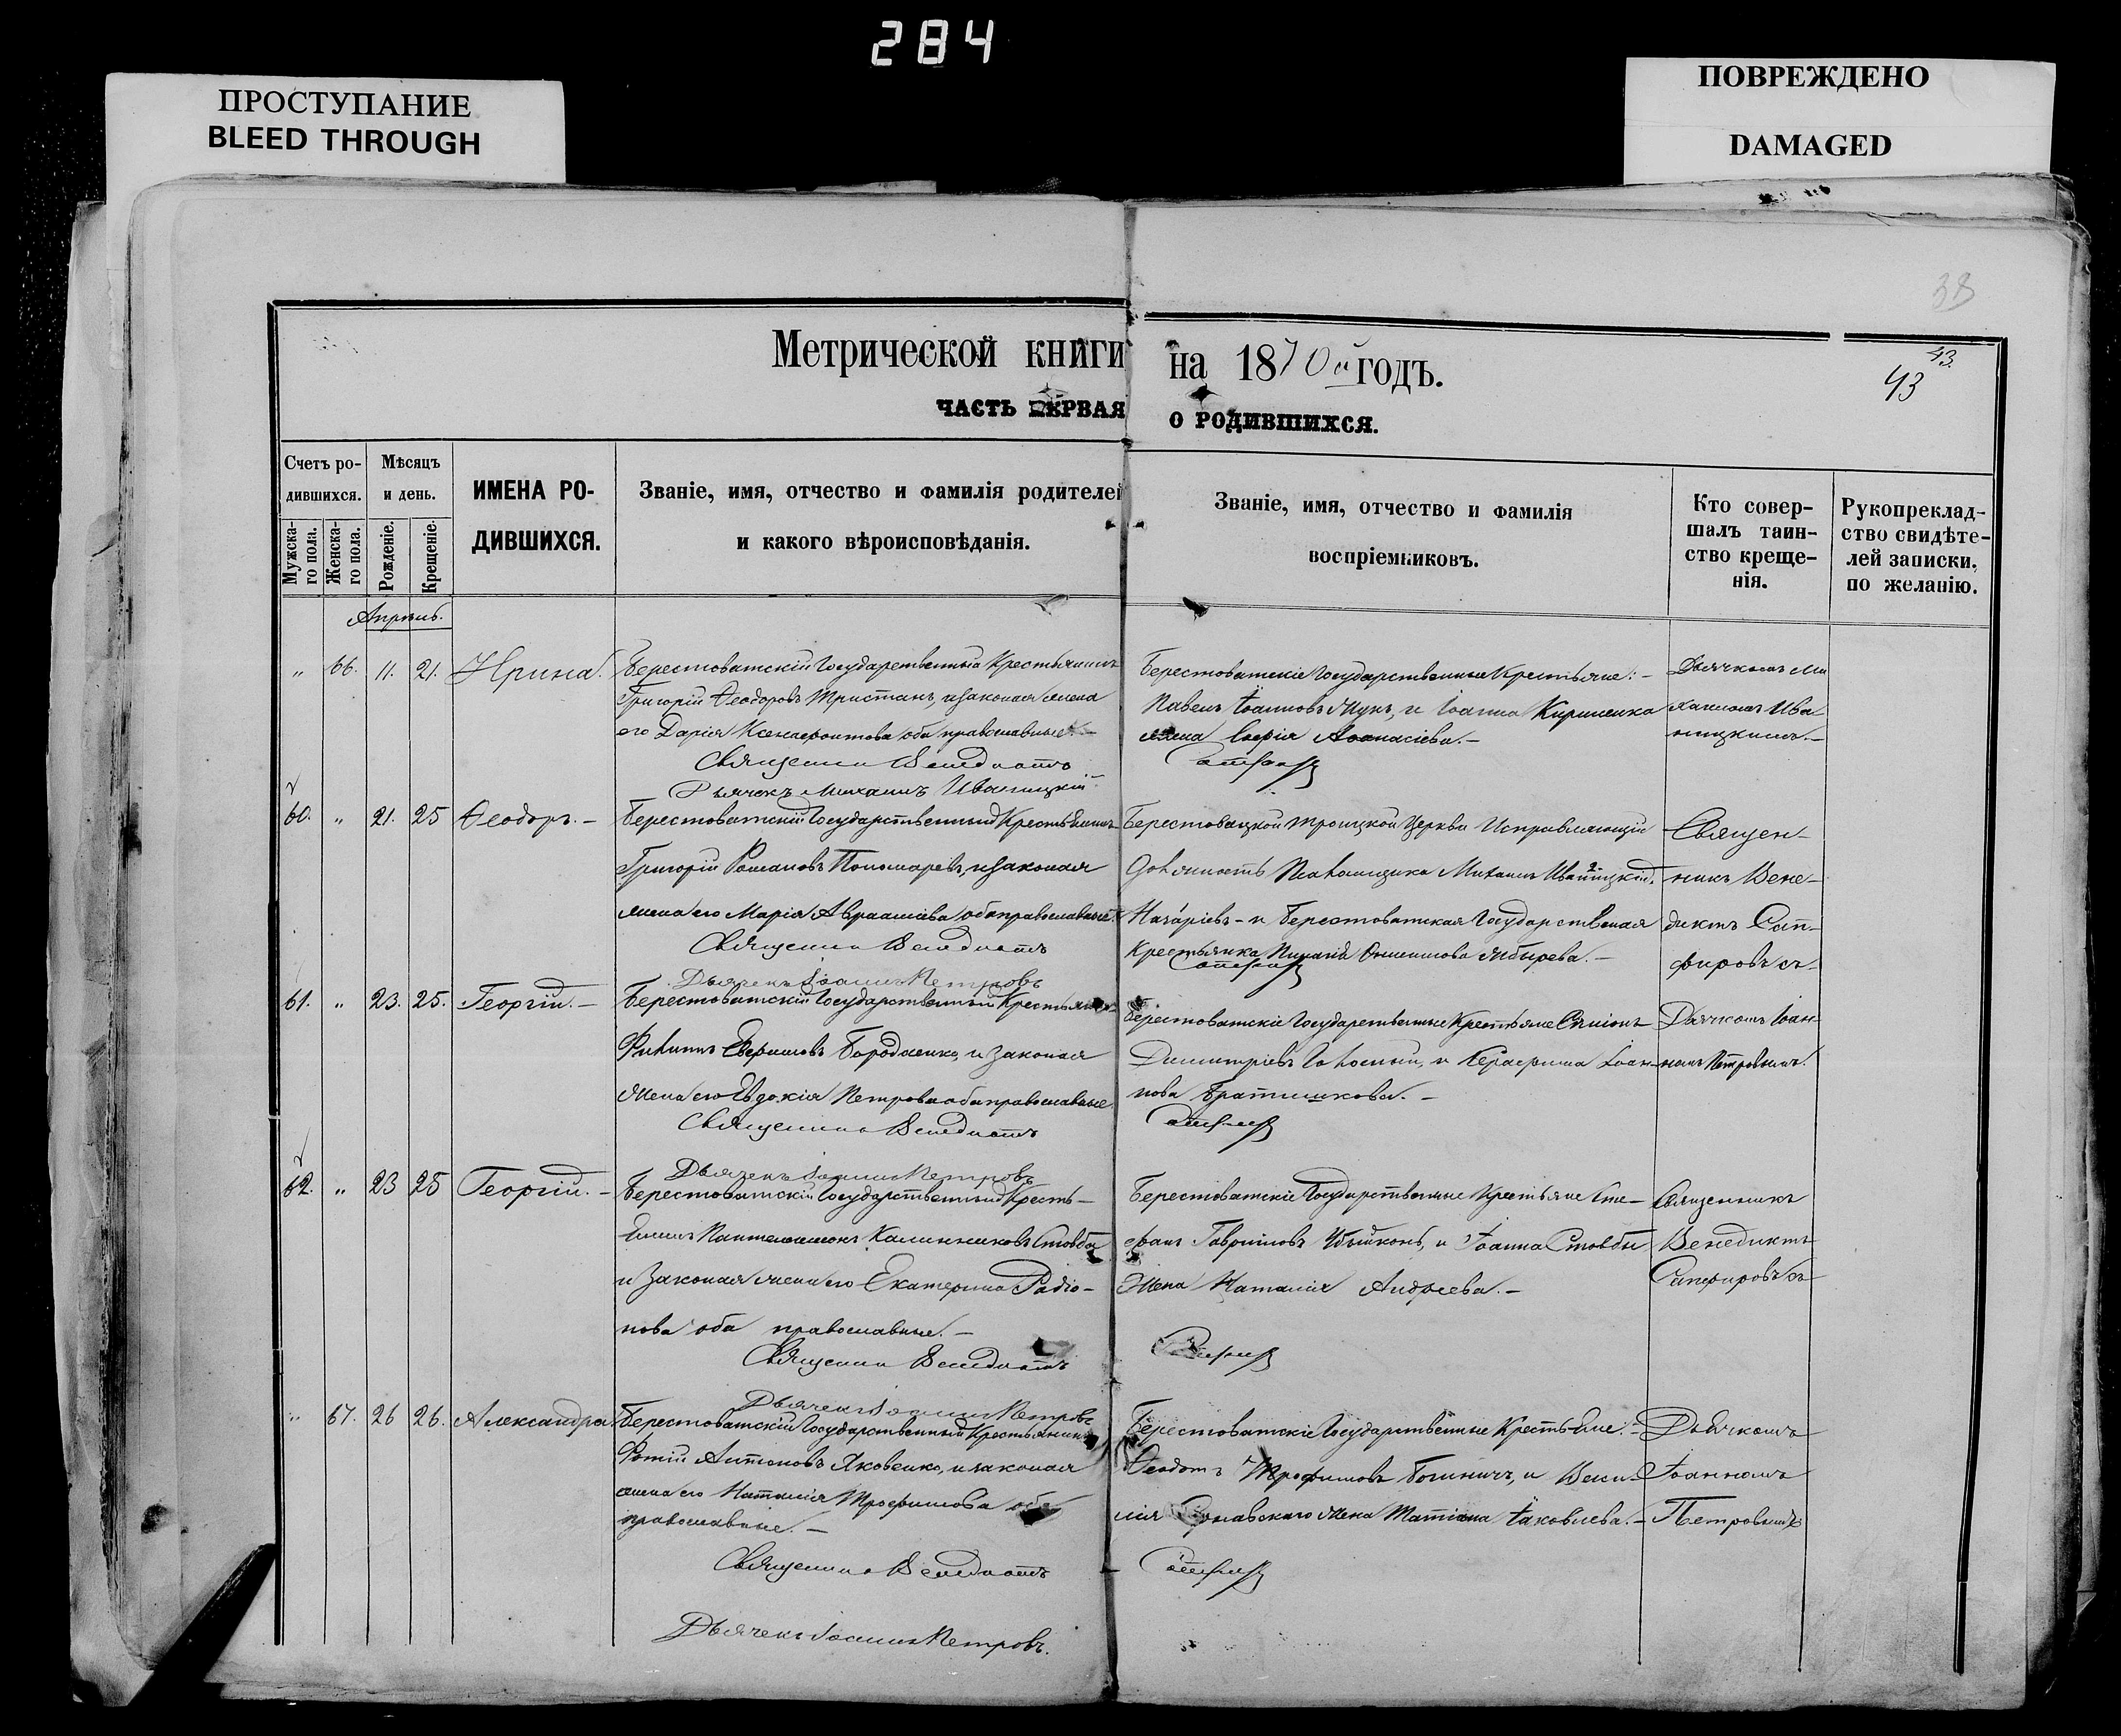 284
ПРОСТУПАНИЕ
BLEED THROUGH
ПОВРЕЖДЕНО
DAMAGED
38
Метрической книги на 1870й годъ.
43
43
ЧАСТЬ ПЕРВАЯ О РОДИВШИХСЯ.
Счетъ родившихся.
Мужскаго пола.
Женскаго пола.
Мѣсяцъ и день.
Рожденіе.
Крещеніе.
ИМЕНА РО-
ДИВШИХСЯ.
Званіе, имя, отчество и фамилія родителей
и какого вѣроисповѣданія.
Званіе, имя, отчество и фамилія
воспріемниковъ.
Кто совер-
шалъ таин-
ство креще-
нія.
Рукоприклад-
ство свидѣте-
лей записки,
по желанію.
Апрѣль.
" 66. 11. 21. Ирина.
Берестоватскій Государственный Крестьянинъ
Григорій Ѳеодоровъ Тристанъ, и законная жена
его Дарія Ксенофонтова оба православные. —
Священникъ Венедиктъ
Дьячекъ Михаилъ Иваницкій
Берестоватскіе Государственные Крестьяне: —
Павелъ Іоанновъ и Іоанна Кириленка
жена Аѳанасіева. —
Сапфировъ
Дьячкомъ Ми
хаиломъ Ива
ницкимъ. —
60. " 21. 25 Ѳеодоръ. —
Берестоватскій Государственный Крестьянинъ
Григорій Романовъ Пономаревъ, и законная
жена его Марія Аврааміева оба православные.
Священникъ Венедиктъ
Дьячекъ Іоаннъ Петровъ
Берестовацкой Троицкой Церкви Исправляющій
Должность Псаломщика Михаилъ Иваницкій.
Назаріевъ — и Берестоватская Государственая
Крестьянка Онисимова —
Сапфировъ
Священ-
никъ Вене-
диктъ Сап-
фировъ съ
61. " 23. 25. Георгій. —
Берестоватскій Государственный Крестьянинъ
Филипъ Ефремовъ Бородаенко, и законая
жена его Евдокія Петрова оба православные.
Священникъ Венедиктъ
Дьячекъ Іоаннъ Петровъ
Берестоватскіе Государственные Крестьяне
Димитріевъ и Іоан-
нова Братишкова. —
Сапфировъ
Дьячкомъ Іоан-
номъ Петровымъ.
62. " 23 25 Георгій. —
Берестоватскій Государственный Кресть-
янинъ Пантелеимонъ Калинниковъ Стовба
и Законая жена его Екатерина Радіо-
нова оба православные. —
Священникъ Венедиктъ
Дьячекъ Іоаннъ Петровъ
Берестоватскіе Государственные Крестьяне Сте-
фанъ Гавриловъ и Іоанна Стовбы
Жена Наталія Андреева. —
Сапфировъ
Священникъ
Венедиктъ
Сапфировъ съ
" 67. 26 26. Александра
Берестоватскій Государственный Крестьянинъ
Фотій Антоновъ Яковенко, и законая
жена его Наталія Трофимова оба
православные. —
Священникъ Венедиктъ
Дьячекъ Іоаннъ Петровъ.
Берестоватскіе Государственные Крестьяне: —
Ѳеодотъ Трофимовъ и
жена Татіана Іаковлева. —
Сапфировъ
Дьячкомъ
Іоанномъ
Петровымъ